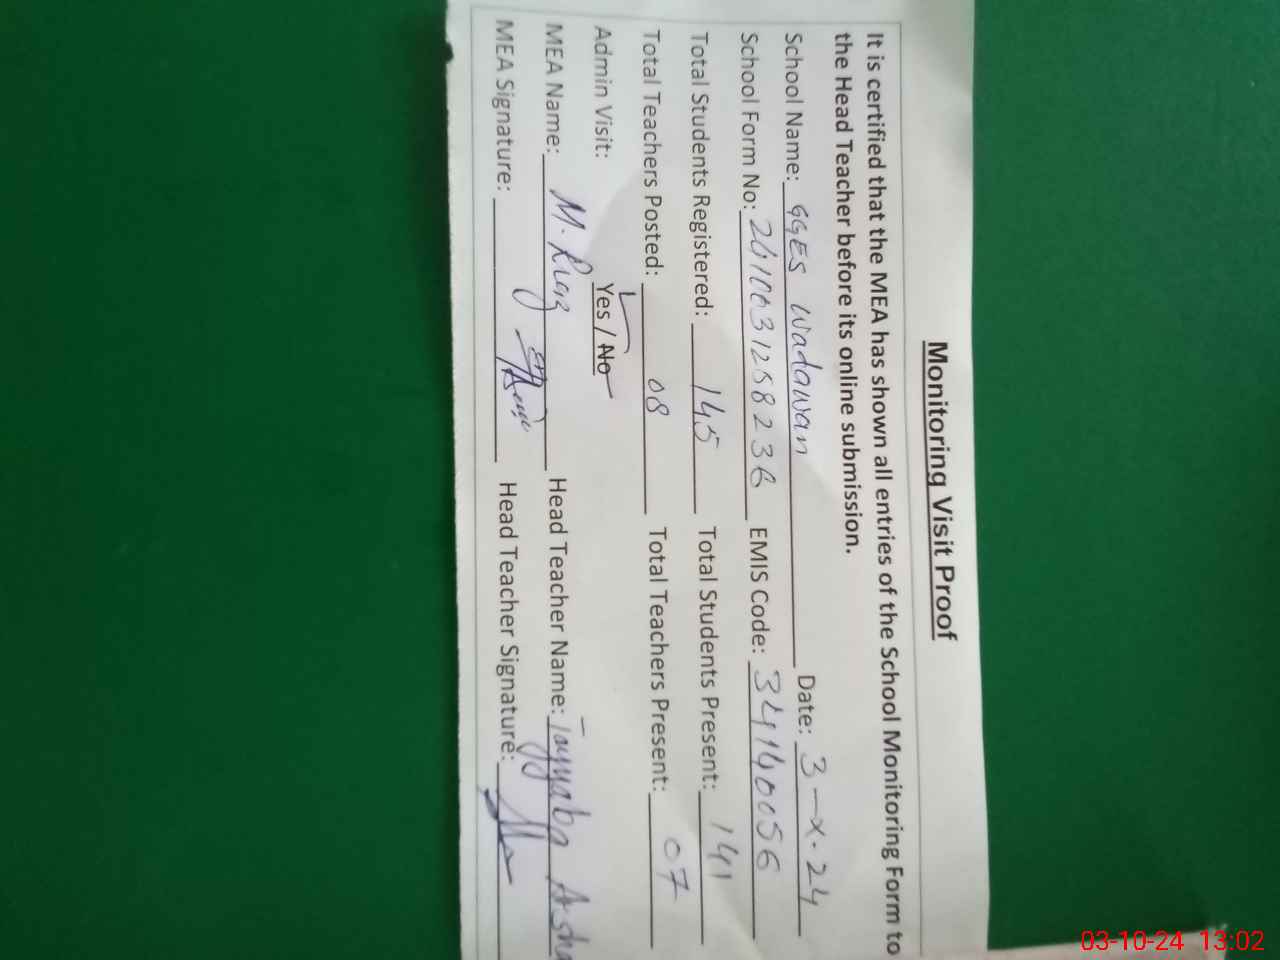 Monitoring Visit Proof
It is certified that the MEA has shown all entries of the School Monitoring Form to
the Head Teacher before its online submission.
School Name: GGES Wadawan Date: 3-X-24
School Form No: 2410031258236 EMIS Code: 34140056
Total Students Registered: 145 Total Students Present: 141
Total Teachers Posted: 08 Total Teachers Present: 07
Admin Visit: Yes / No
MEA Name: M. Riaz Head Teacher Name: Tayyaba
MEA Signature: Head Teacher Signature:
03-10-24 13:02